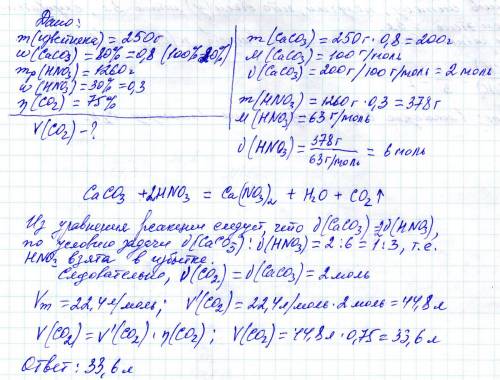 Дано:
m(известняка)=250г
w(CaCO3)=80%=0,8 (100%-20%)
mp(HNO3)=1260г
w(HNO3)=30%=0,3
η(CO2)=75%
V(CO2)-?
m(CaCO3)=250г·0,8=200г
M(CaCO3)=100г/моль
ν(CaCO3)=200г/100г/моль=2 моль
m(HNO3)=1260г·0,3=378г
M(HNO3)=63г/моль
ν(HNO3)=378г/63г/моль=6моль
CaCO3 +2HNO3 = Ca(NO3)2 + H2O + CO2↑
Из уравнения реакции следует, что ν(CaCO3)=½ν(HNO3),
по условию задачи ν(CaCO3):ν(HNO3)=2:6=1:3, т.е.
HNO3 взята в избытке.
Следовательно, ν(CO2)=ν(CaCO3)=2моль
Vm=22,4л/моль; V'(CO2)=22,4л/моль·2моль=44,8л
V(CO2)=V'(CO2)·η(CO2); V(CO2)=44,8л·0,75=33,6л
Ответ: 33,6л